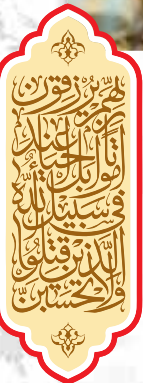 ولا تحسبن
الذين قتلوا
في سبيل الله
أمواتا بل أحياء عند
ربهم يرزقون